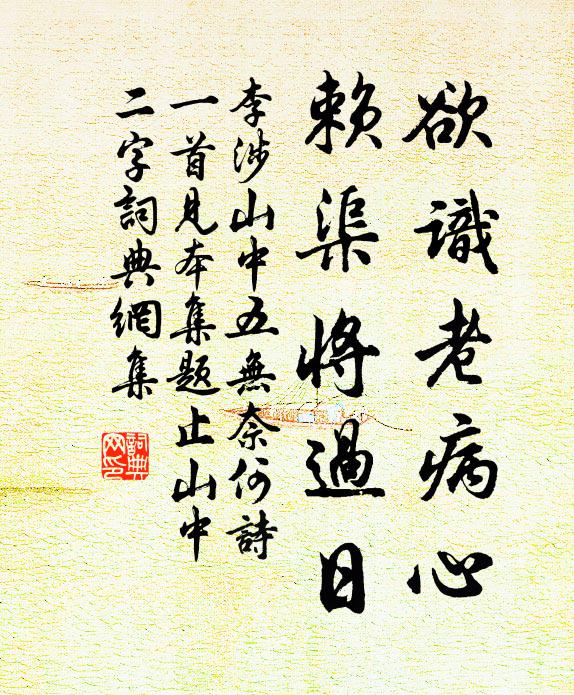 欲識老病心
賴渠將過日
李涉山中五無奈何詩
一首見本集題止山中
二字詞典網集
詞典
网印